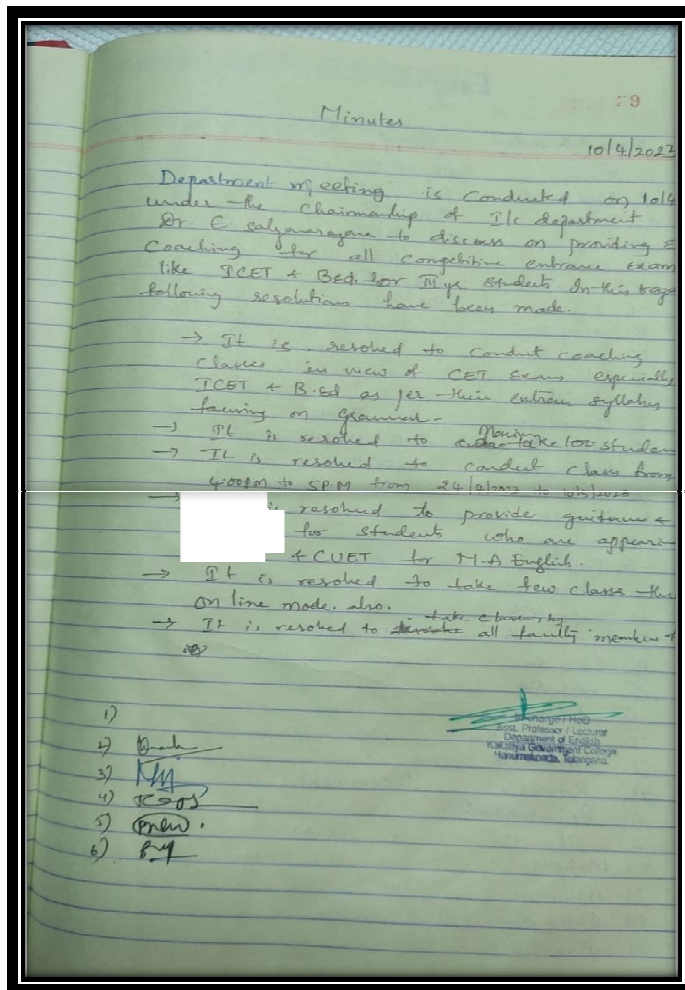 29
Minutes
10/4/2023
Department meeting is conducted on 10/4
under the chairmanship of I/c department
Dr. E. Satyanarayana to discuss on providing
Coaching for all competitive entrance exam
like ICET & B.Ed. for III yr students In this
following resolutions have been made.
→ It is resolved to conduct coaching
classes in view of CET Exams especially
ICET & B.Ed as per their entrance syllabus
on Grammar.
→ It is resolved to take 100 studen
→ It is resolved to conduct class from
4:00PM to 5P.M from 24/4/2023 to
→ is resolved to provide guidance &
for students who are appeari
& CUET for M.A English.
→ It is resolved to take few classes thr
on line mode. also.
→ It is resolved to take classes by all faculty members
1)
2)
3)
4)
5)
6)
Incharge / HoD
Asst. Professor / Lecturer
Department of English
Kakatiya Government College
Hanumakonda, Telangana.